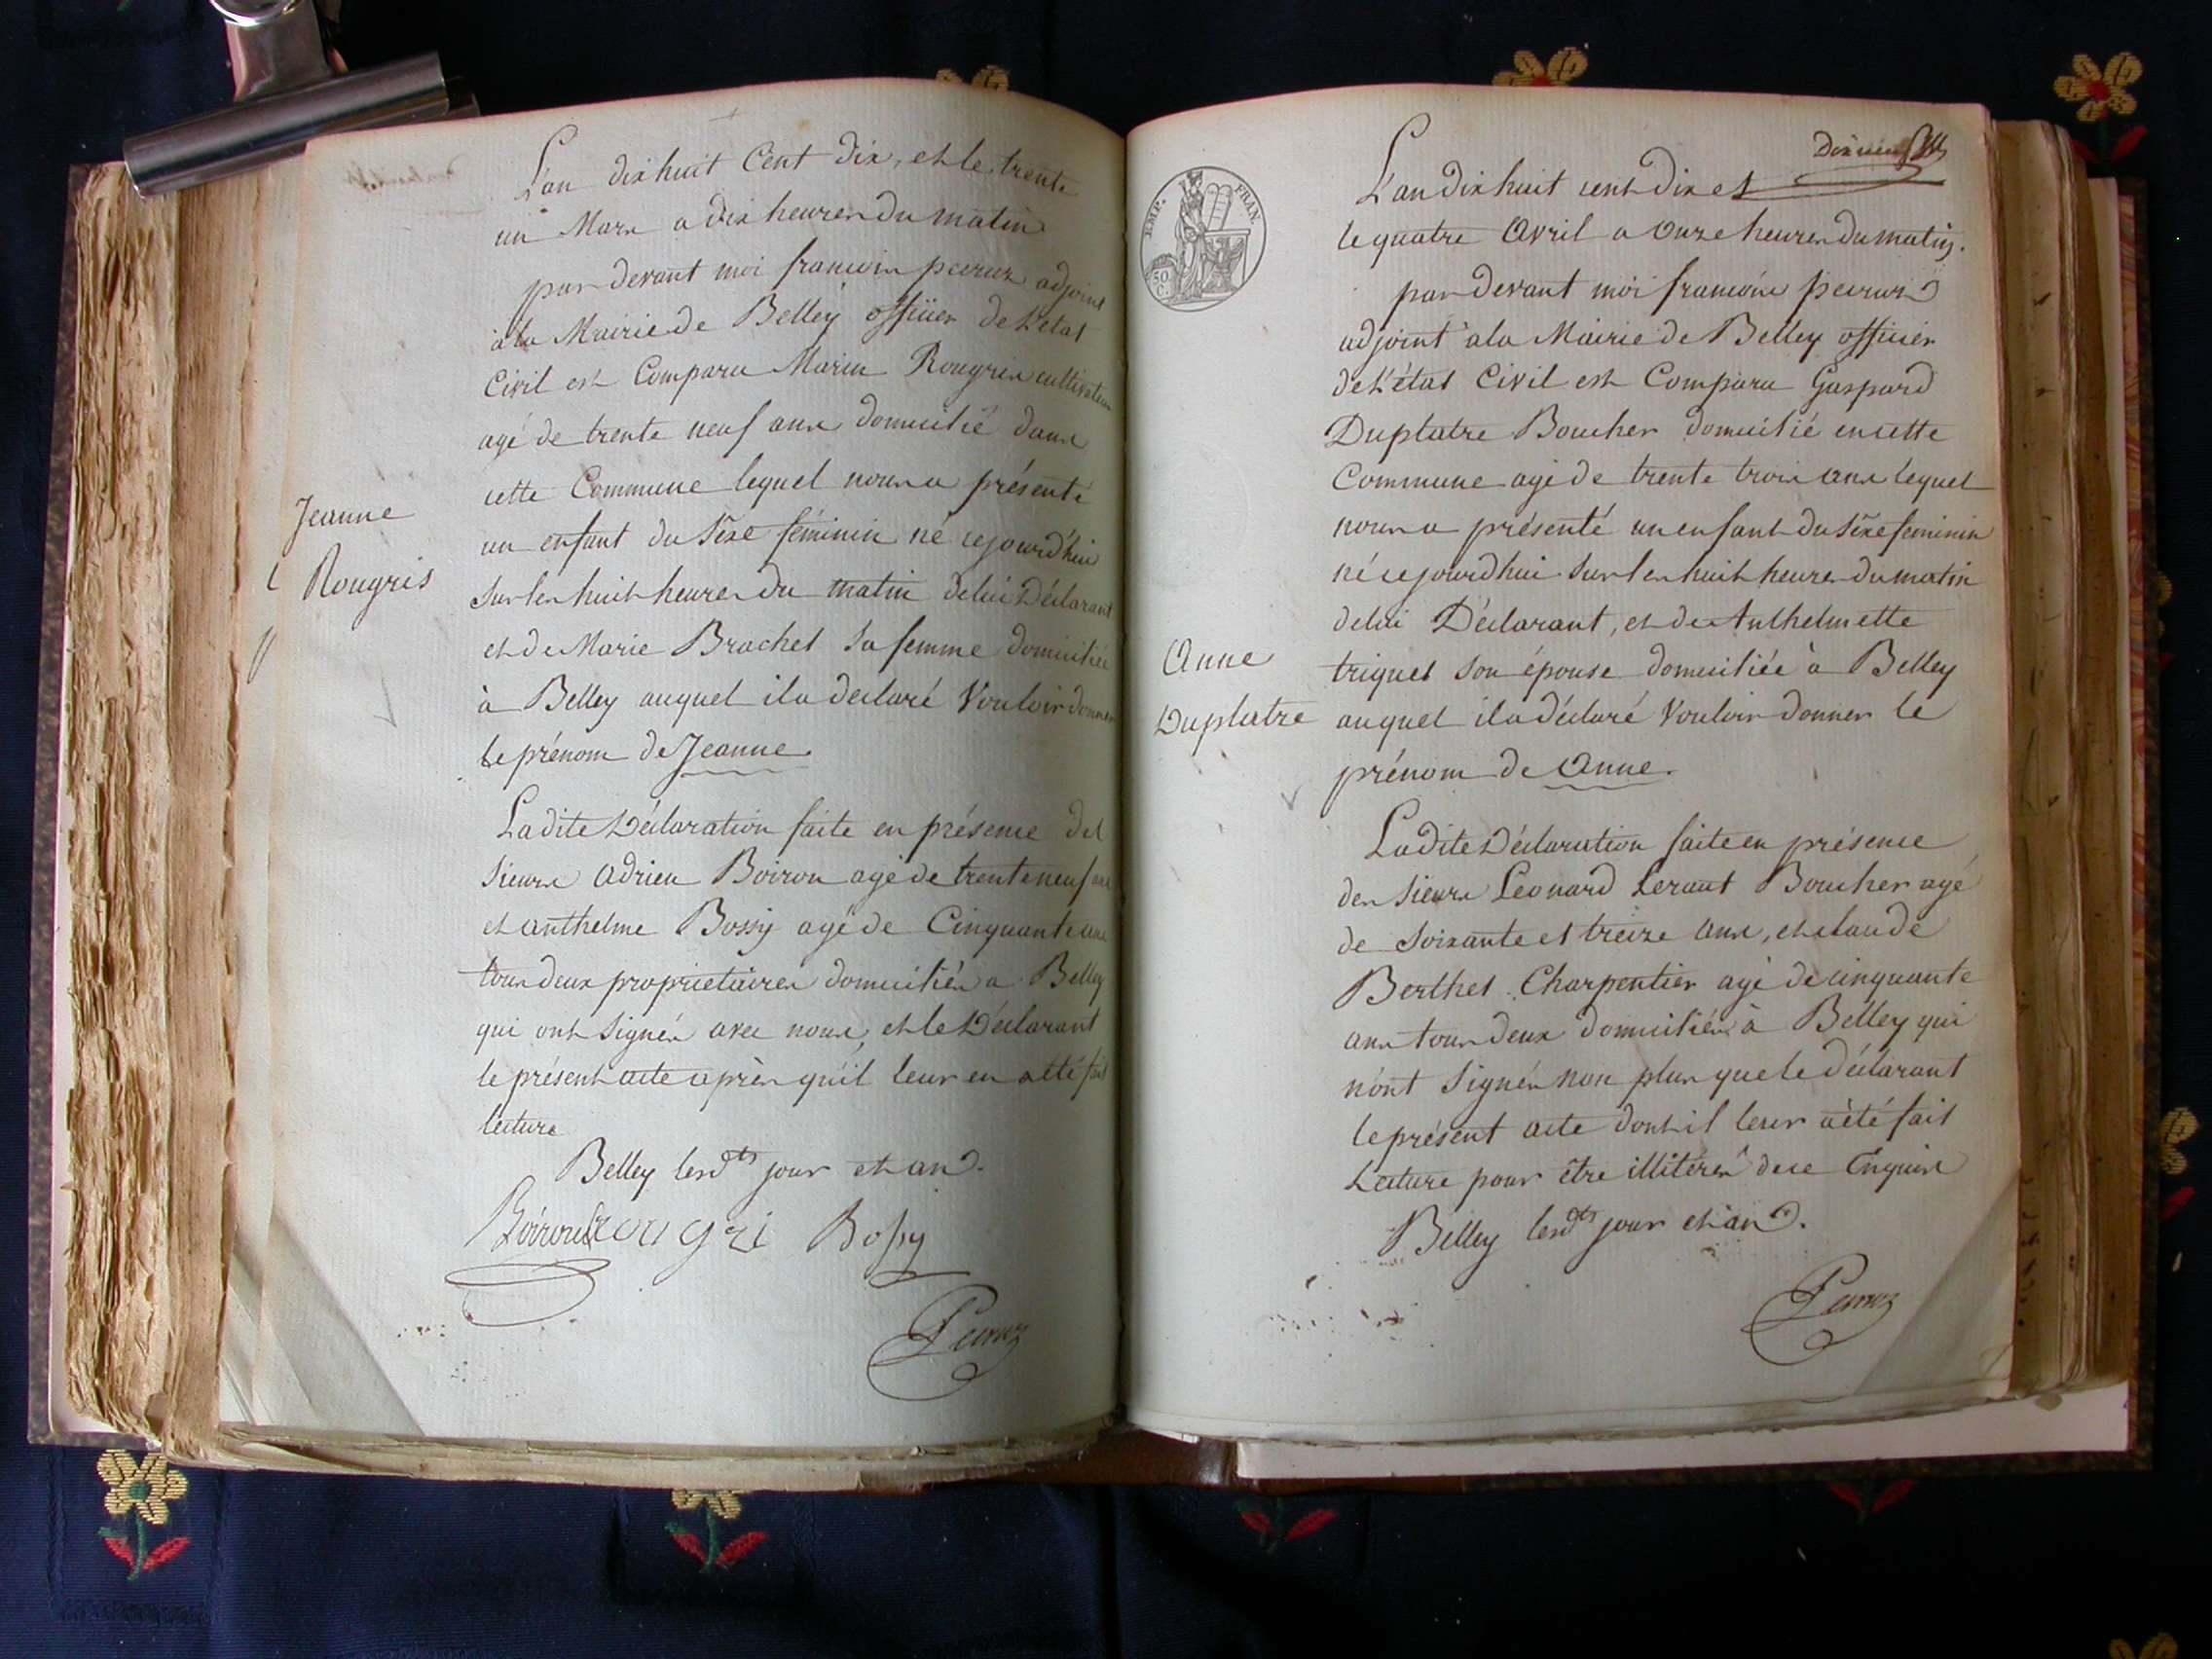 L'an dix huit Cent dix, et le trente
un Mars a dix heures du matin
par devant moi francois peeruz adjoint
à la Mairie de Belley officier de L'etat
Civil est Comparu Marin Rougris cultivateur
agé de trente neuf ans domicilié dans
cette Commune lequel nous a présenté
un enfant du Sexe féminin né cejourd'hui
Sur les huit heures du matin de lui Déclarant
et de Marie Brachet Sa femme domiciliée
à Belley auquel il a declaré Vouloir donner
le prénom de Jeanne.
Jeanne
Rougris
La dite Déclaration faite en présence des
Sieurs Adrien Boiron agé de trente neuf ans
et anthelme Bossy agé de Cinquante ans
tous deux proprietaires domiciliés a Belley
qui ont Signés avec nous, et le Déclarant
le présent acte après qu'il leur en a été fait
lecture
Belley lesdts jour et an.
Boiron Rougri Bossy
EMP. FRAN.
50 C.
L'an dix huit cent dix et
le quatre Avril a Onze heures du matin.
par devant moi francois
adjoint a la Mairie de Belley officier
de L'état Civil est Comparu Gaspard
Duplatre Boucher domicilié en cette
Commune agé de trente trois ans lequel
nous a présenté un enfant du Sexe feminin
né cejourdhui Sur les huit heures du matin
de lui Déclarant, et de Anthelmette
triquet Son épouse domiciliée à Belley
auquel il a déclaré Vouloir donner le
prénom de Anne.
Anne
Duplatre
La dite Déclaration faite en présence
des Sieurs Leonard Leraut Boucher agé
de Soixante et treize ans, et claude
Berthet Charpentier agé de cinquante
ans tous deux domiciliés à Belley qui
n'ont Signés non plus que le déclarant
le présent acte dont il leur a été fait
Lecture pour être illiterés de ce Enquis
Belley lesdts jour et an.